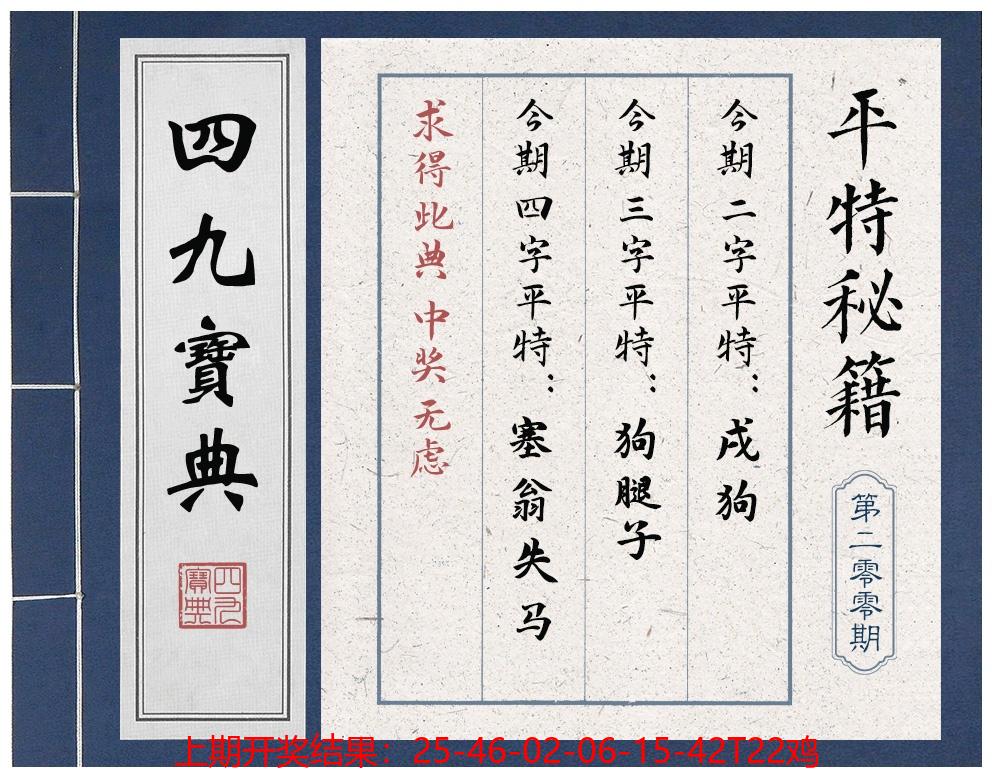 平特秘籍
第二零零期
今期二字平特：戌狗
今期三字平特：狗腿子
今期四字平特：塞翁失马
求得此典 中奖无虑
四九寶典
四九寶典
上期开奖结果：25-46-02-06-15-42T22鸡